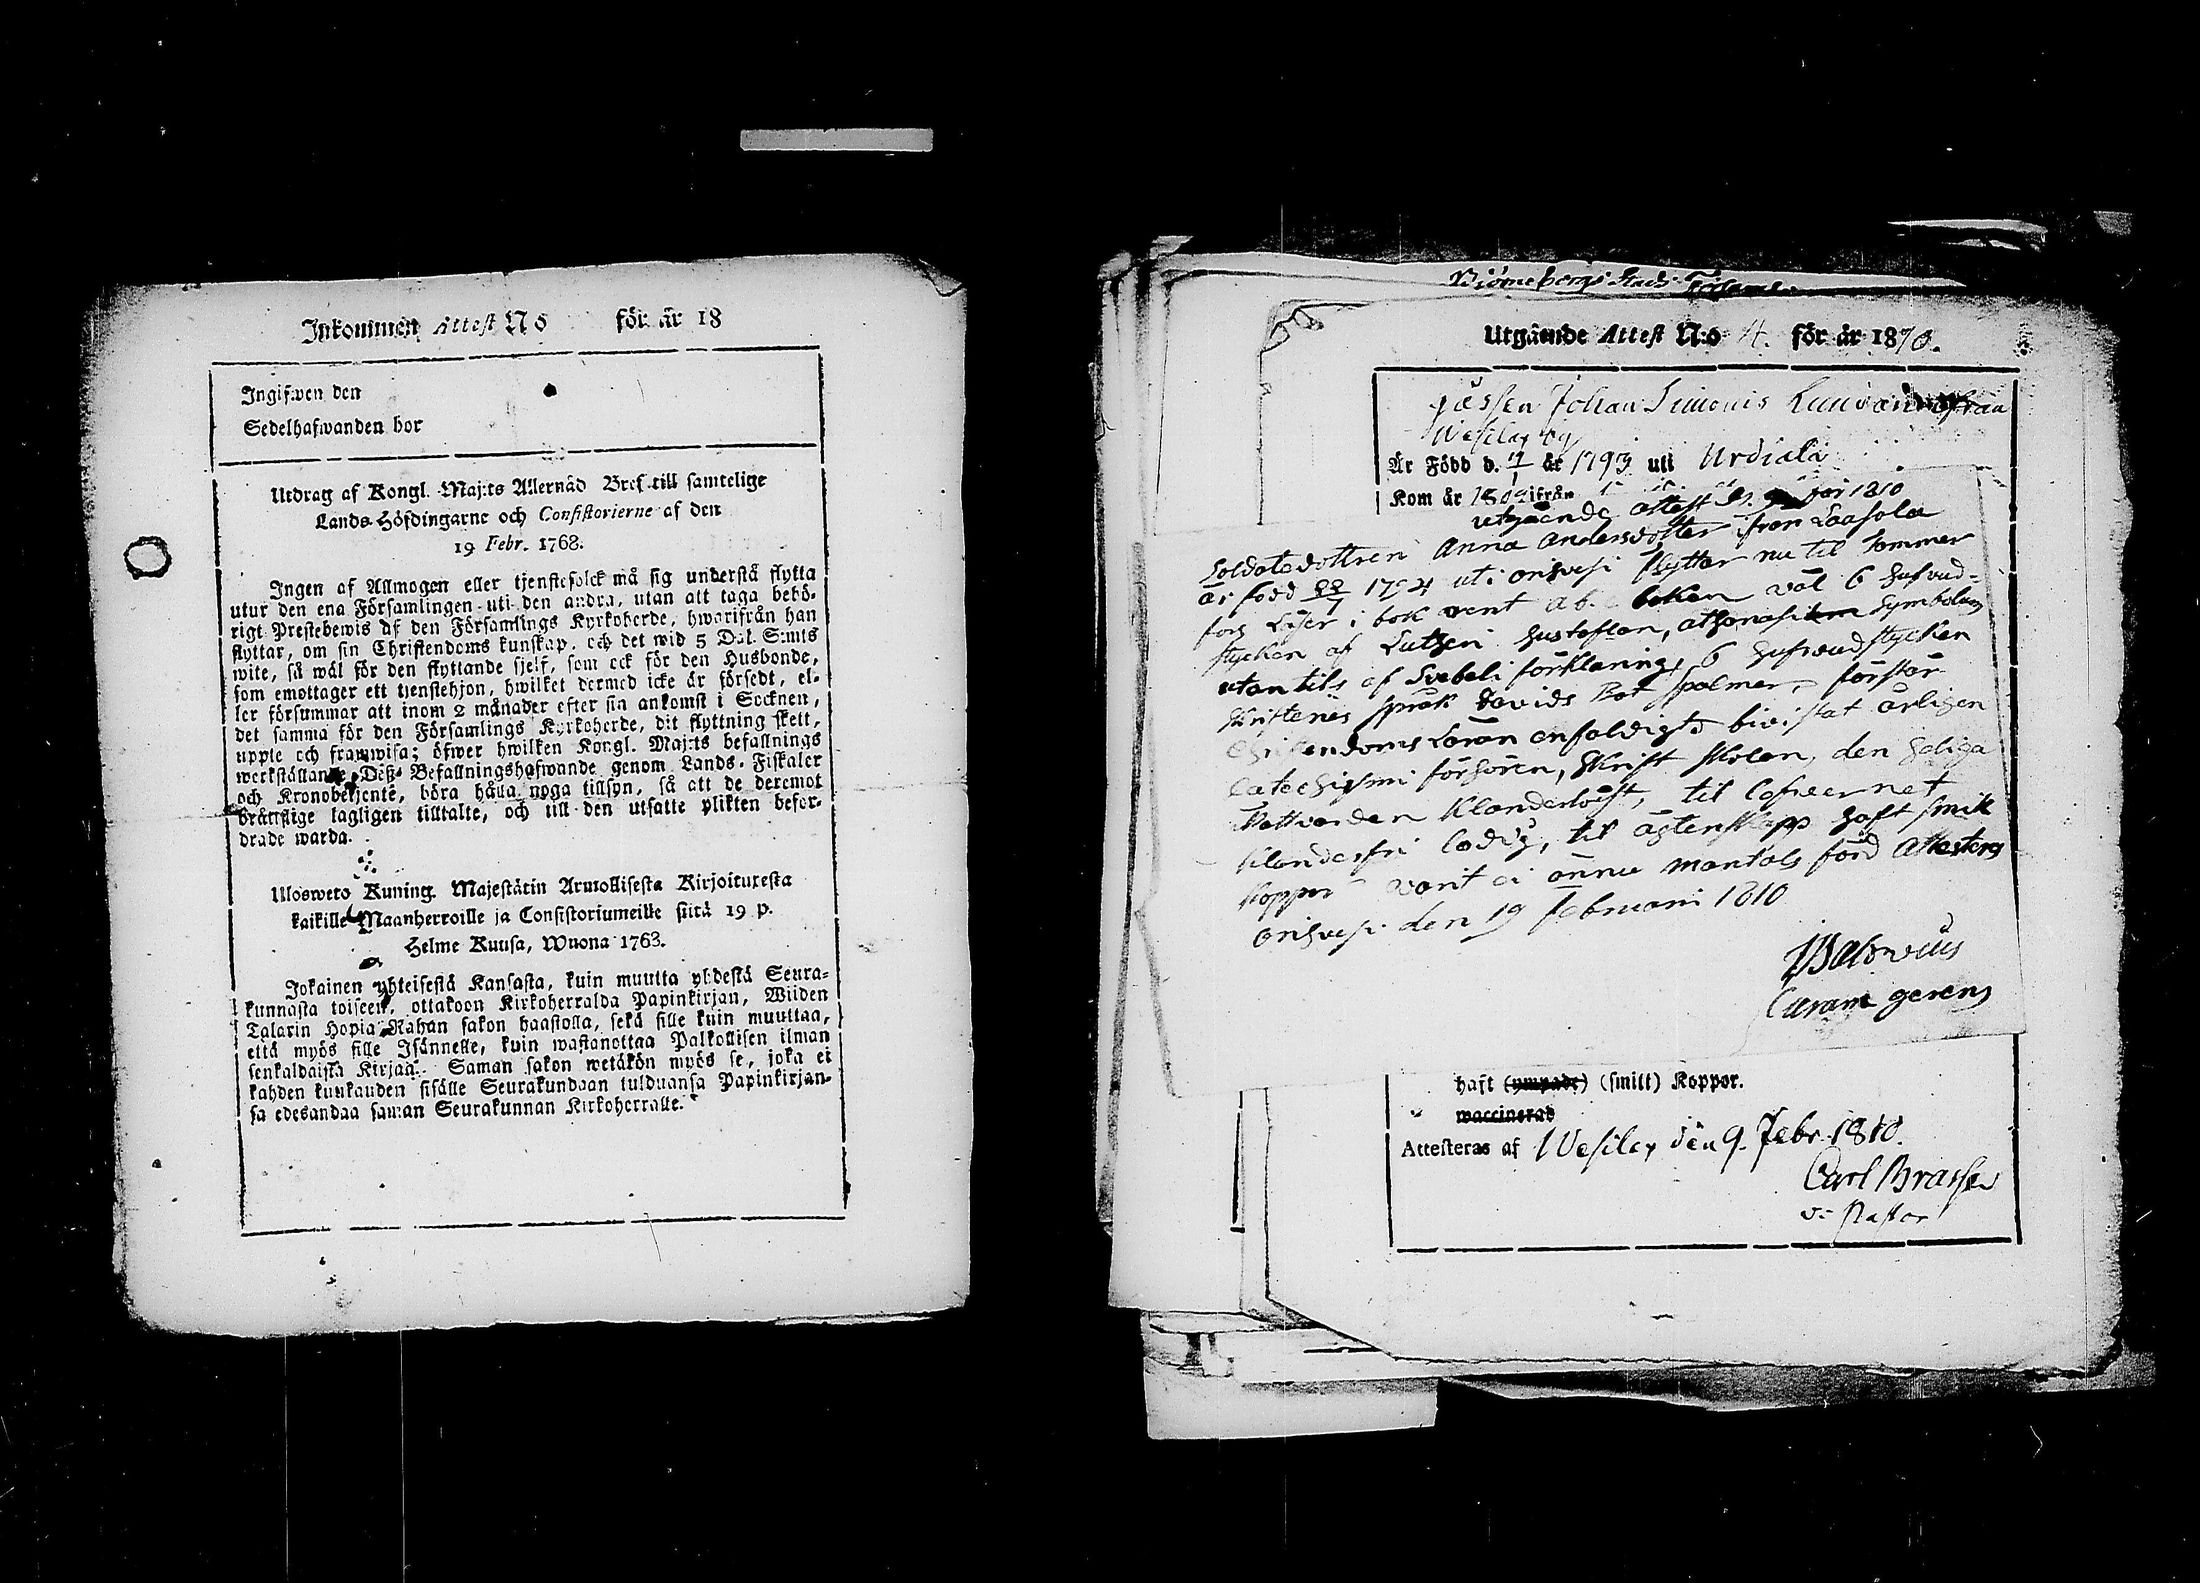 Inkommen Attest No för år 18
Ingifwen den
Sedelhafwanden bor
Utdrag af Kongl. Maj:ts Allernåd Bref till samtelige
Lands-Höfdingarne och Consistorierne af den
19 Febr. 1768.
Ingen af Allmogen eller tjenstefolck må sig understå flytta
utur den ena Församlingen uti den andra, utan att taga behö-
rigt Prestebewis af den Församlings Kyrkoherde, hwarifrån han
flyttar, om sin Christendoms kunskap, och det wid 5 Dal. S:mts
wite, så wäl för den flyttande sjelf, som ock för den Husbonde,
som emottager ett tjenstehjon, hwilket dermed icke är försedt, el-
ler försummar att inom 2 månader efter sin ankomst i Socknen,
det samma för den Församlings Kyrkoherde, dit flyttning skett,
uppte och framwisa; öfwer hwilken Kongl. Maj:ts befallnings
werkställande, Deß Befallningshafwande genom Lands-Fiskaler
och Kronobetjente, böra hålla noga tillsyn, så att de deremot
bråttslige lagligen tilltalte, och till den utsatte plikten befor-
drade warda.
Uloswero Kuning. Majestätin Armollisesta Kirjoituxesta
kaikille Maanherroille ja Consistoriumeille siitä 19 p.
Helme Kuusa, Wuona 1763.
Jokainen yhteisestä Kansasta, kuin muutta yhdestä Seura-
kunnasta toiseen, ottakoon Kirkoherralda Papinkirjan, Wiiden
Talarin Hopia Rahan sakon haastolla, sekä sille kuin muuttaa,
että myös sille Isännelle, kuin wastanottaa Palkollisen ilman
senkaldaista Kirjaa. Saman sakon wetäkön myös se, joka ei
kahden kuukauden sisälle Seurakundaan tulduansa Papinkirjan-
sa edesandaa saman Seurakunnan Kirkoherralle.
Björneborgs Stads
Utgående Attest N:o 4. för år 1810.
Johan Simonis
Wesilax
Är Född d. 7/1 år 1793 uti Urdiala
Kom år 1809 ifrån
utgående attest för 1810
Soldatedottren Anna Andersdotter ifron Laasola
är född 22/7 1794 uti orihvesi flyttar nu til Tommer
fors Läser i bok rent a b boken väl 6 hufvud-
stycken af Lutheri hustaflan, athanasium Symbolum
utantils af Svebeli förklaring 6 hufvudstycken
skriftenes språk Davids Bot psalmer, förstår
Christendoms Läran enfaldigt bivistat årligen
catechismi förhören, skrift skolan, den heliga
Nattvarden Klanderlöst, til lefvernet
klanderfri Ledig til ägtenskapp haft smit
koppor varit ei ännu mantals förd Attesteras
orihvesi den 19 februari 1810
Curam gerens
haft (ympade) (smitt) Koppor.
waccinerad
Attesteras af Wesilax den 9. Febr. 1810.
Carl Brasse
v: Pastor